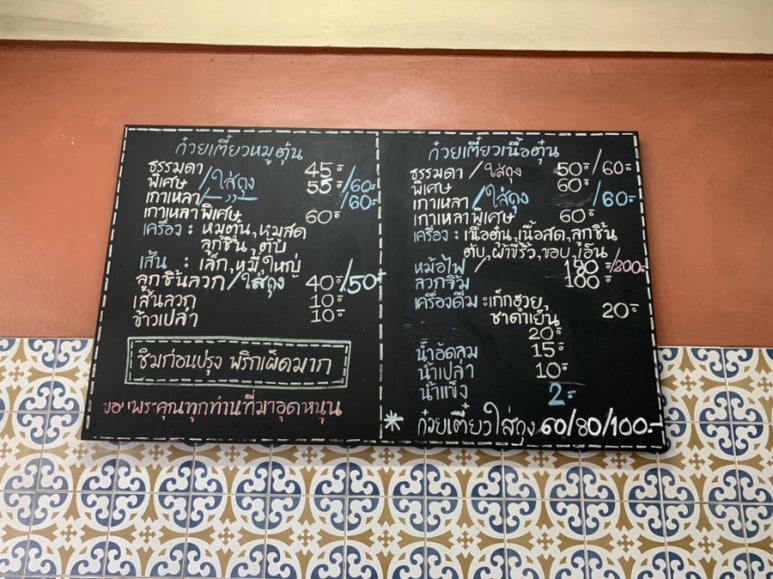 ก๋วยเตี๋ยวหมูตุ๋น
ธรรมดา 45.-
พิเศษ /ใส่ถุง 55.-/60.-
เกาเหลา /—,,— /60.-
เกาเหลาพิเศษ 60.-
เครื่อง : หมูตุ๋น,หมูสด
ลูกชิ้น,ตับ
เส้น : เล็ก,หมี่,ใหญ่
ลูกชิ้นลวก/ใส่ถุง 40.-/50.-
เส้นลวก 10.-
ข้าวเปล่า 10.-
ชิมก่อนปรุง พริกเผ็ดมาก
ขอบพระคุณทุกท่านที่มาอุดหนุน
ก๋วยเตี๋ยวเนื้อตุ๋น
ธรรมดา /ใส่ถุง 50.-/60.-
พิเศษ 60.-
เกาเหลา /ใส่ถุง /60.-
เกาเหลาพิเศษ 60.-
เครื่อง : เนื้อตุ๋น,เนื้อสด,ลูกชิ้น
ตับ,ผ้าขี้ริ้ว,ขอบ,เอ็น
หม้อไฟ /200.-
ลวกจิ้ม 100.-
เครื่องดื่ม : เก็กฮวย,
ชาดำเย็น 20.-
20.-
น้ำอัดลม 15.-
น้ำเปล่า 10.-
น้ำแข็ง 2.-
* ก๋วยเตี๋ยวใส่ถุง 60/80/100.-